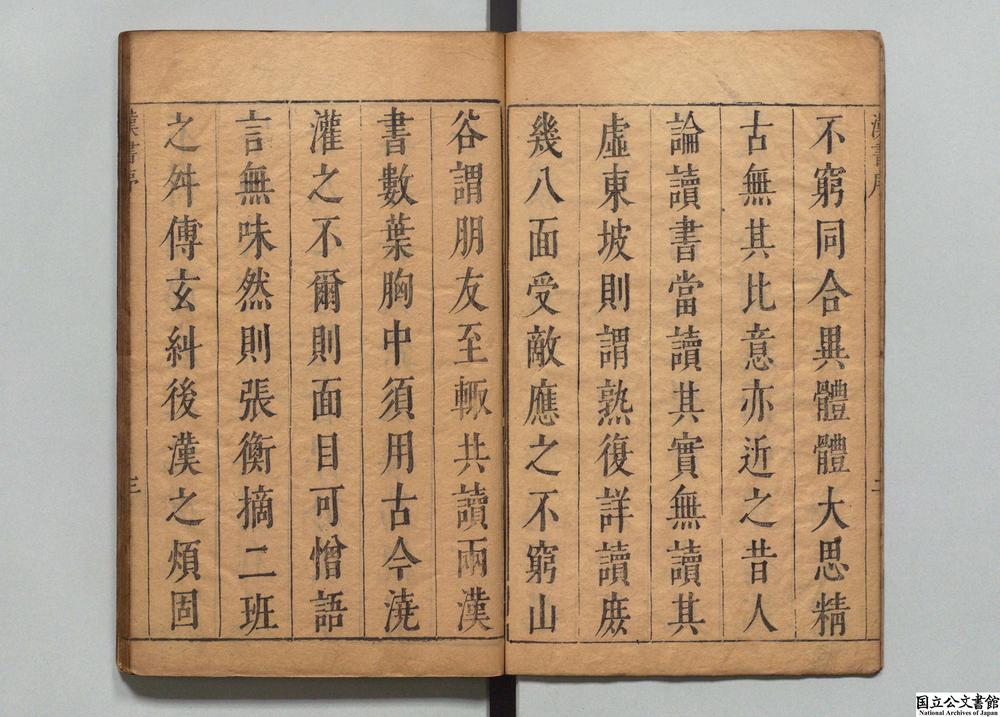 漢書序
二
不窮同合異體體大思精
古無其比意亦近之昔人
論讀書當讀其實無讀其
虛東坡則謂熟復詳讀庶
幾八面受敵應之不窮山
谷謂朋友至輙共讀兩漢
書數葉胸中須用古今澆
灌之不爾則面目可憎語
言無味然則張衡摘二班
之舛傅玄糾後漢之煩固
漢書序
三
国立公文書館
National Archives of Japan